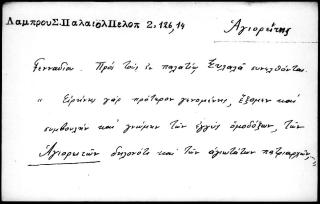 Λαμπρου Σ. Παλαιολ Πελοπ 2, 126, 14
Ἁγιορείτης
Γενναδίου. Πρὸς τοὺς ἐν παλατίῳ Ξυλαλᾶ συνελθόντας.
" Εἰρήνης γὰρ πρότερον γενομένης, ἕξομεν καὶ
συμβουλὴν καὶ γνώμην τῶν ἐγγὺς ὁμοδόξων, τῶν
Ἁγιορητῶν δηλονότι καὶ τῶν ἁγιωτάτων πατριαρχῶν,"